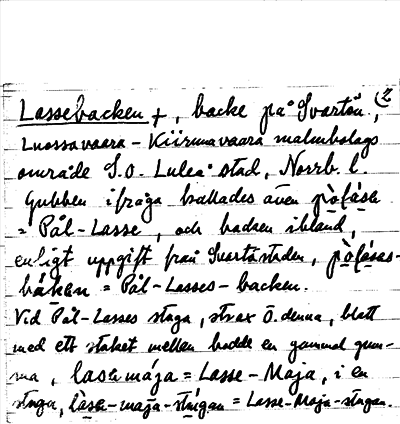 Lassebacken +, backe på Svartön, (2
Luossavaara-Kiirunavaara malmbolags
område S.O. Luleå stad, Norrb. l.
Gubben ifråga kallades även pòlása
= Pål-Lasse, och backen ibland,
enligt uppgift från Svartöstaden, pòlásas-
bákan = Pål-Lasses-backen.
Vid Pål-Lasses stuga, strax ö. denna, blott
med ett staket mellan bodde en gammal gum-
ma, lasamája = Lasse-Maja, i en
stuga, lasa-maja-stugan = Lasse-Maja-stugan.